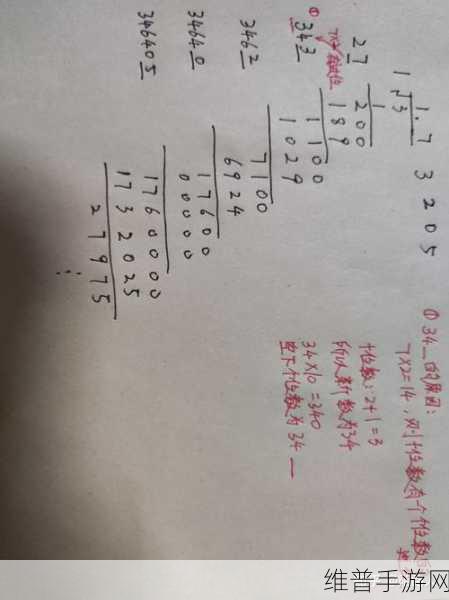 1. 7 3 2 0 5
1 √3
1
27 200
189
① 343 1100
7×2 1029
3462 7100
6924
34640 17600
00000
346405 1760000
1732025
27975
⋮
① 34_的原因:
7×2=14, 则十位数有一个个位数
十位数:2+1=3
所以新数为34
34×10=340
空下个位数为34_
维普手游网